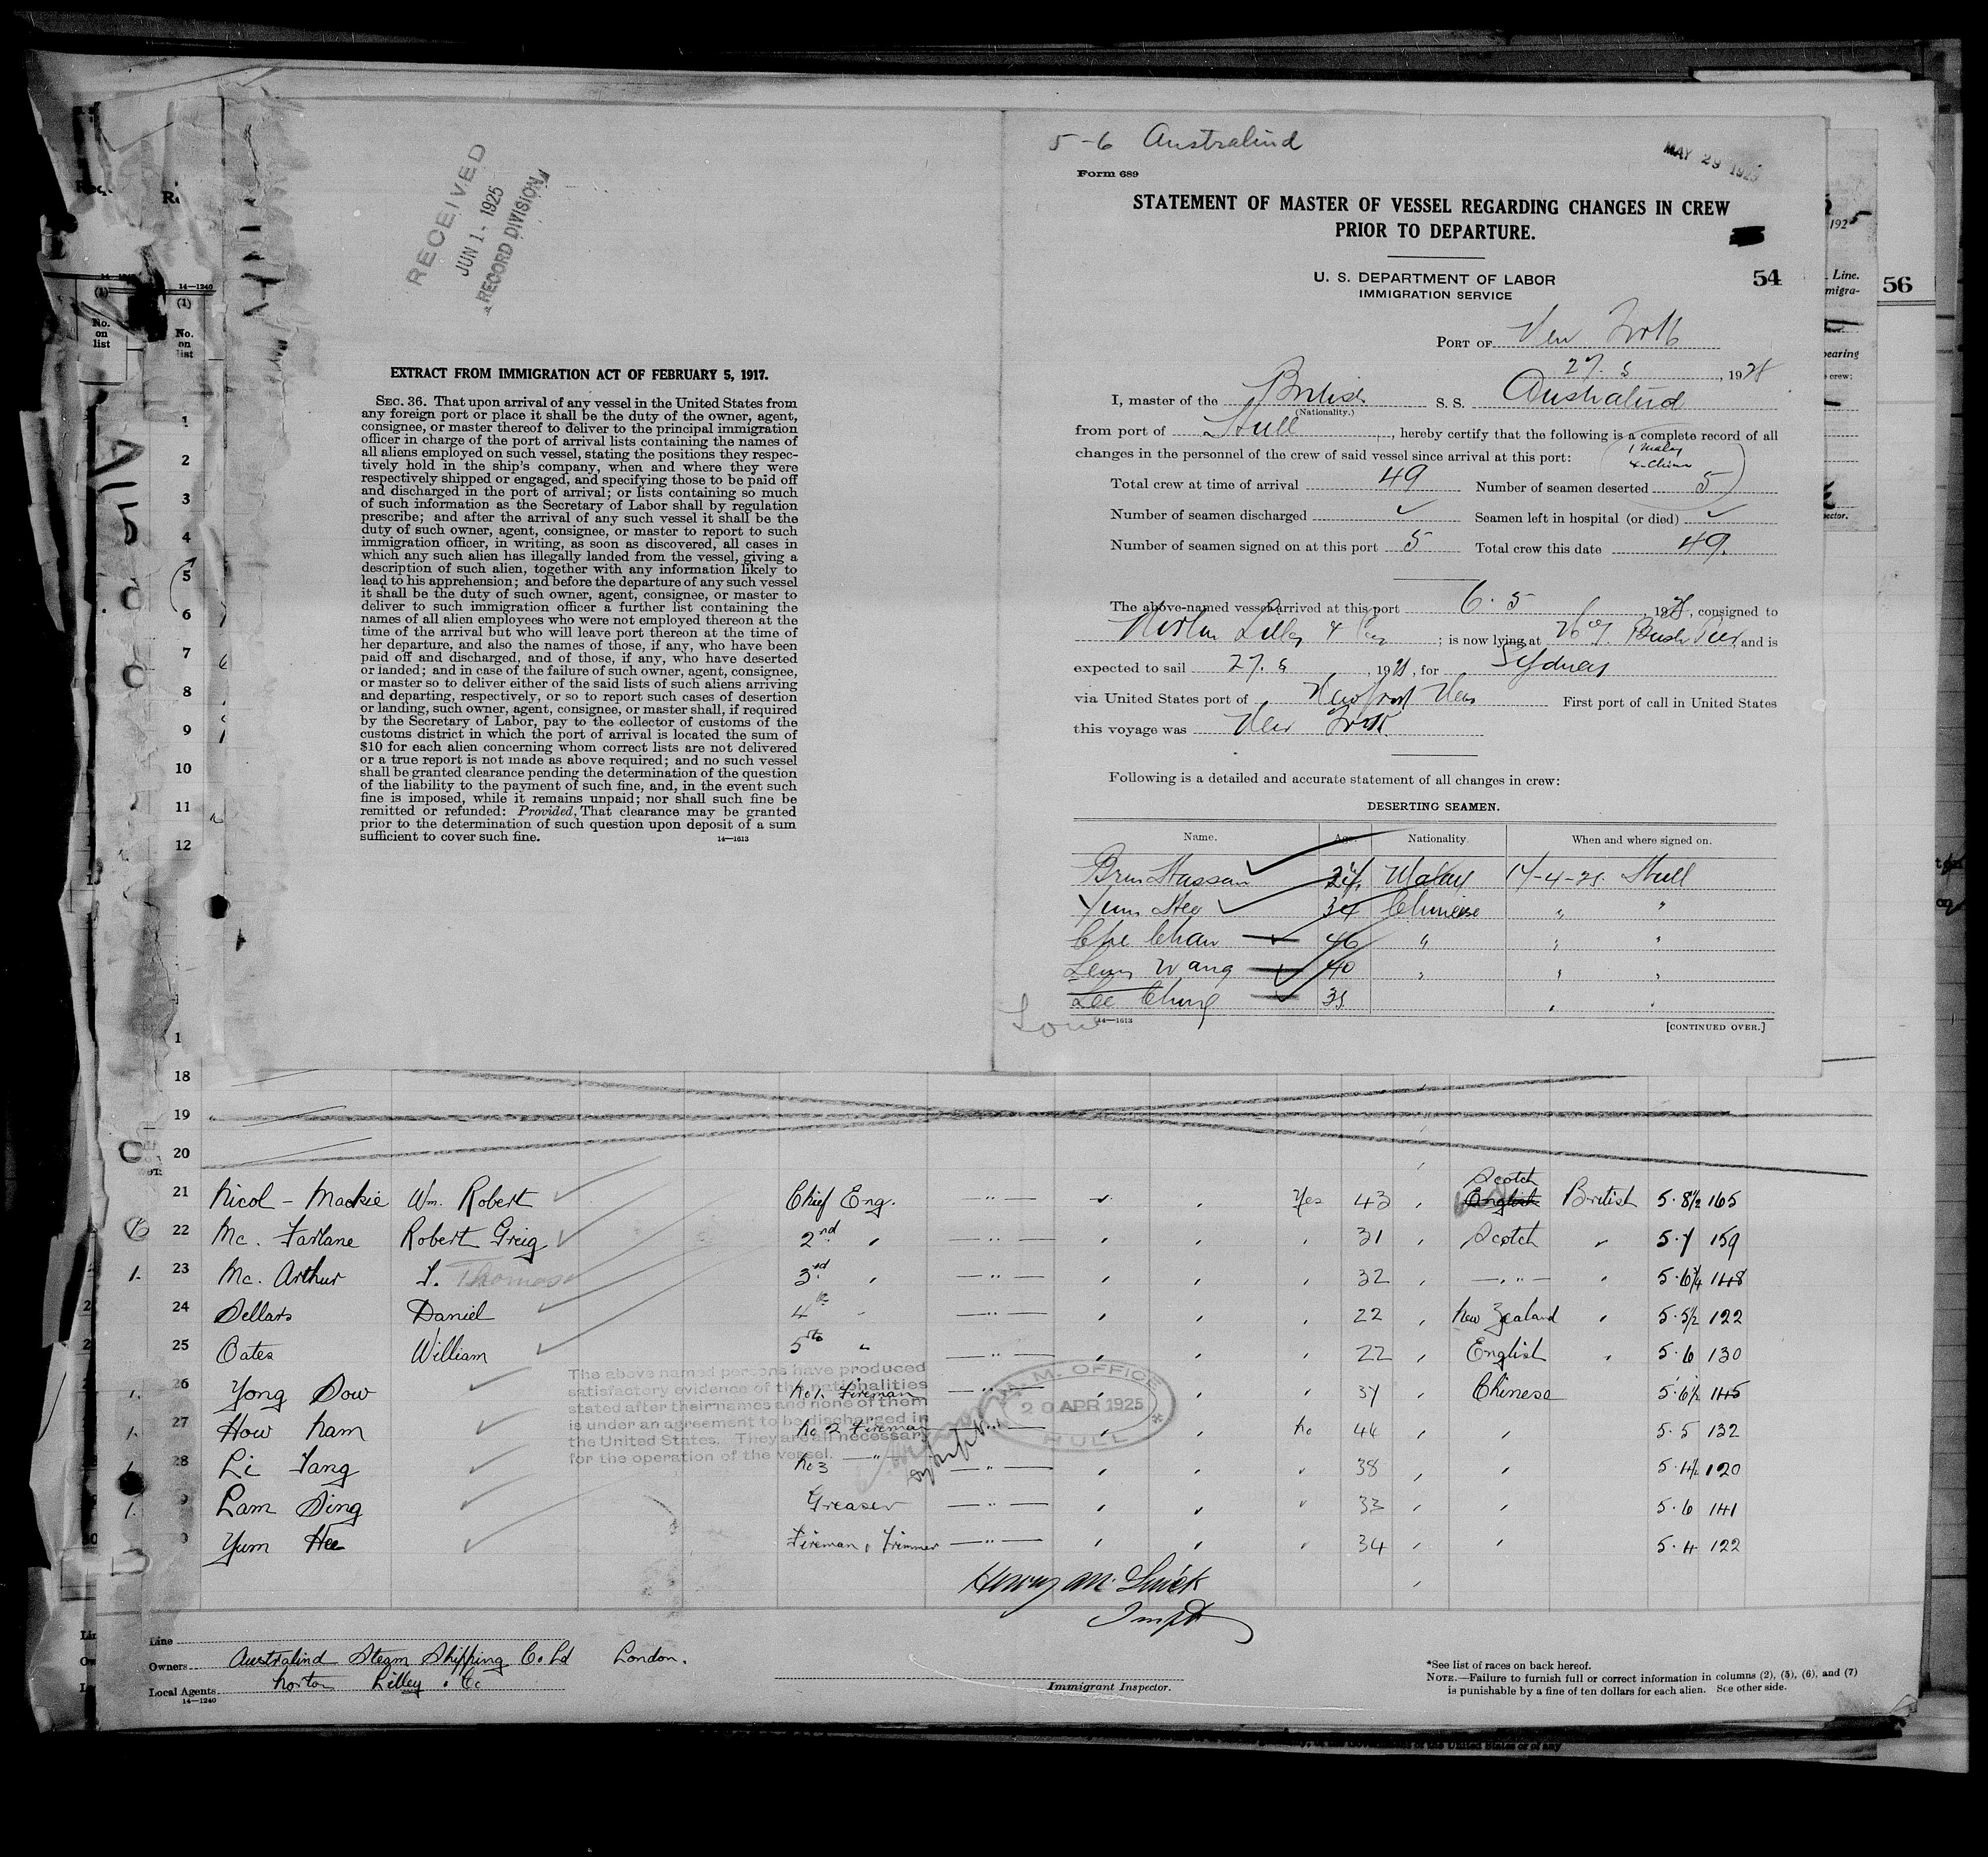 RECEIVED
JUN 1- 1925
RECORD DIVISION
EXTRACT FROM IMMIGRATION ACT OF FEBRUARY 5, 1917.
SEC. 36. That upon arrival of any vessel in the United States from
any foreign port or place it shall be the duty of the owner, agent,
consignee, or master thereof to deliver to the principal immigration
officer in charge of the port of arrival lists containing the names of
all aliens employed on such vessel, stating the positions they respec-
tively hold in the ship's company, when and where they were
respectively shipped or engaged, and specifying those to be paid off
and discharged in the port of arrival; or lists containing so much
of such information as the Secretary of Labor shall by regulation
prescribe; and after the arrival of any such vessel it shall be the
duty of such owner, agent, consignee, or master to report to such
immigration officer, in writing, as soon as discovered, all cases in
which any such alien has illegally landed from the vessel, giving a
description of such alien, together with any information likely to
lead to his apprehension; and before the departure of any such vessel
it shall be the duty of such owner, agent, consignee, or master to
deliver to such immigration officer a further list containing the
names of all alien employees who were not employed thereon at the
time of the arrival but who will leave port thereon at the time of
her departure, and also the names of those, if any, who have been
paid off and discharged, and of those, if any, who have deserted
or landed; and in case of the failure of such owner, agent, consignee,
or master so to deliver either of the said lists of such aliens arriving
and departing, respectively, or so to report such cases of desertion
or landing, such owner, agent, consignee, or master shall, if required
by the Secretary of Labor, pay to the collector of customs of the
customs district in which the port of arrival is located the sum of
$10 for each alien concerning whom correct lists are not delivered
or a true report is not made as above required; and no such vessel
shall be granted clearance pending the determination of the question
of the liability to the payment of such fine, and, in the event such
fine is imposed, while it remains unpaid; nor shall such fine be
remitted or refunded: Provided, That clearance may be granted
prior to the determination of such question upon deposit of a sum
sufficient to cover such fine. 14—1613
5-6 Australind
MAY 29 1925
Form 689
STATEMENT OF MASTER OF VESSEL REGARDING CHANGES IN CREW
PRIOR TO DEPARTURE.
U. S. DEPARTMENT OF LABOR
IMMIGRATION SERVICE
54
56
PORT OF New York
27. 5, 1925
I, master of the British S. S. Australind
(Nationality.)
from port of Hull, hereby certify that the following is a complete record of all
changes in the personnel of the crew of said vessel since arrival at this port: 1 Malay
4 China
Total crew at time of arrival 49 Number of seamen deserted 5
Number of seamen discharged ✓ Seamen left in hospital (or died) ✓
Number of seamen signed on at this port 5 Total crew this date 49.
The above-named vessel arrived at this port 6. 5, 1925, consigned to
Norton Lilly & Co; is now lying at Bush Pier, and is
expected to sail 27. 5, 1925, for Sydney
via United States port of Newport News First port of call in United States
this voyage was New York
Following is a detailed and accurate statement of all changes in crew:
DESERTING SEAMEN.
Name. Age. Nationality. When and where signed on.
Brin Hassan 24 Malay 17-4-25 Hull
Yum Hee 34 Chinese " "
Che Chan 46 " " "
Leung Wang 40 " " "
Lee Ching 35 " "
Low
14—1613 [CONTINUED OVER.]
14—1240
(1)
No.
on
list
1
2
3
4
5
6
7
8
9
10
11
12
18
19
20
21 Nicol - Mackie Wm. Robert Chief Eng. —"— ✓ Yes 43 Scotch English British 5. 8½ 165
22 Mc. Farlane Robert Greig 2nd —"— 31 Scotch 5.7 159
23 Mc. Arthur T. Thomas 3rd —"— 32 —"— 5.6¼ 148
24 Sellars Daniel 4th —"— 22 New Zealand 5.5½ 122
25 Oates William 5th —"— 22 English 5.6 130
26 Yong Sow No 1. Fireman —"— 37 Chinese 5.6½ 145
27 How Nam No 2 Fireman No 44 5.5 132
28 Li Fang No 3 —"— 38 5.4½ 120
Lam Sing Greaser —"— 33 5.6 141
Yum Hee Fireman & Trimmer —"— 34 5.4 122
The above named persons have produced
satisfactory evidence of the nationalities
stated after their names and none of them
is under an agreement to be discharged in
the United States. They are all necessary
for the operation of the vessel.
M. M. OFFICE
20 APR 1925
HULL
Line
Owners Australind Steam Shipping Co. Ld London.
Local Agents Norton Lilley & Co
14—1240
Immigrant Inspector.
*See list of races on back hereof.
NOTE.—Failure to furnish full or correct information in columns (2), (5), (6), and (7)
is punishable by a fine of ten dollars for each alien. See other side.